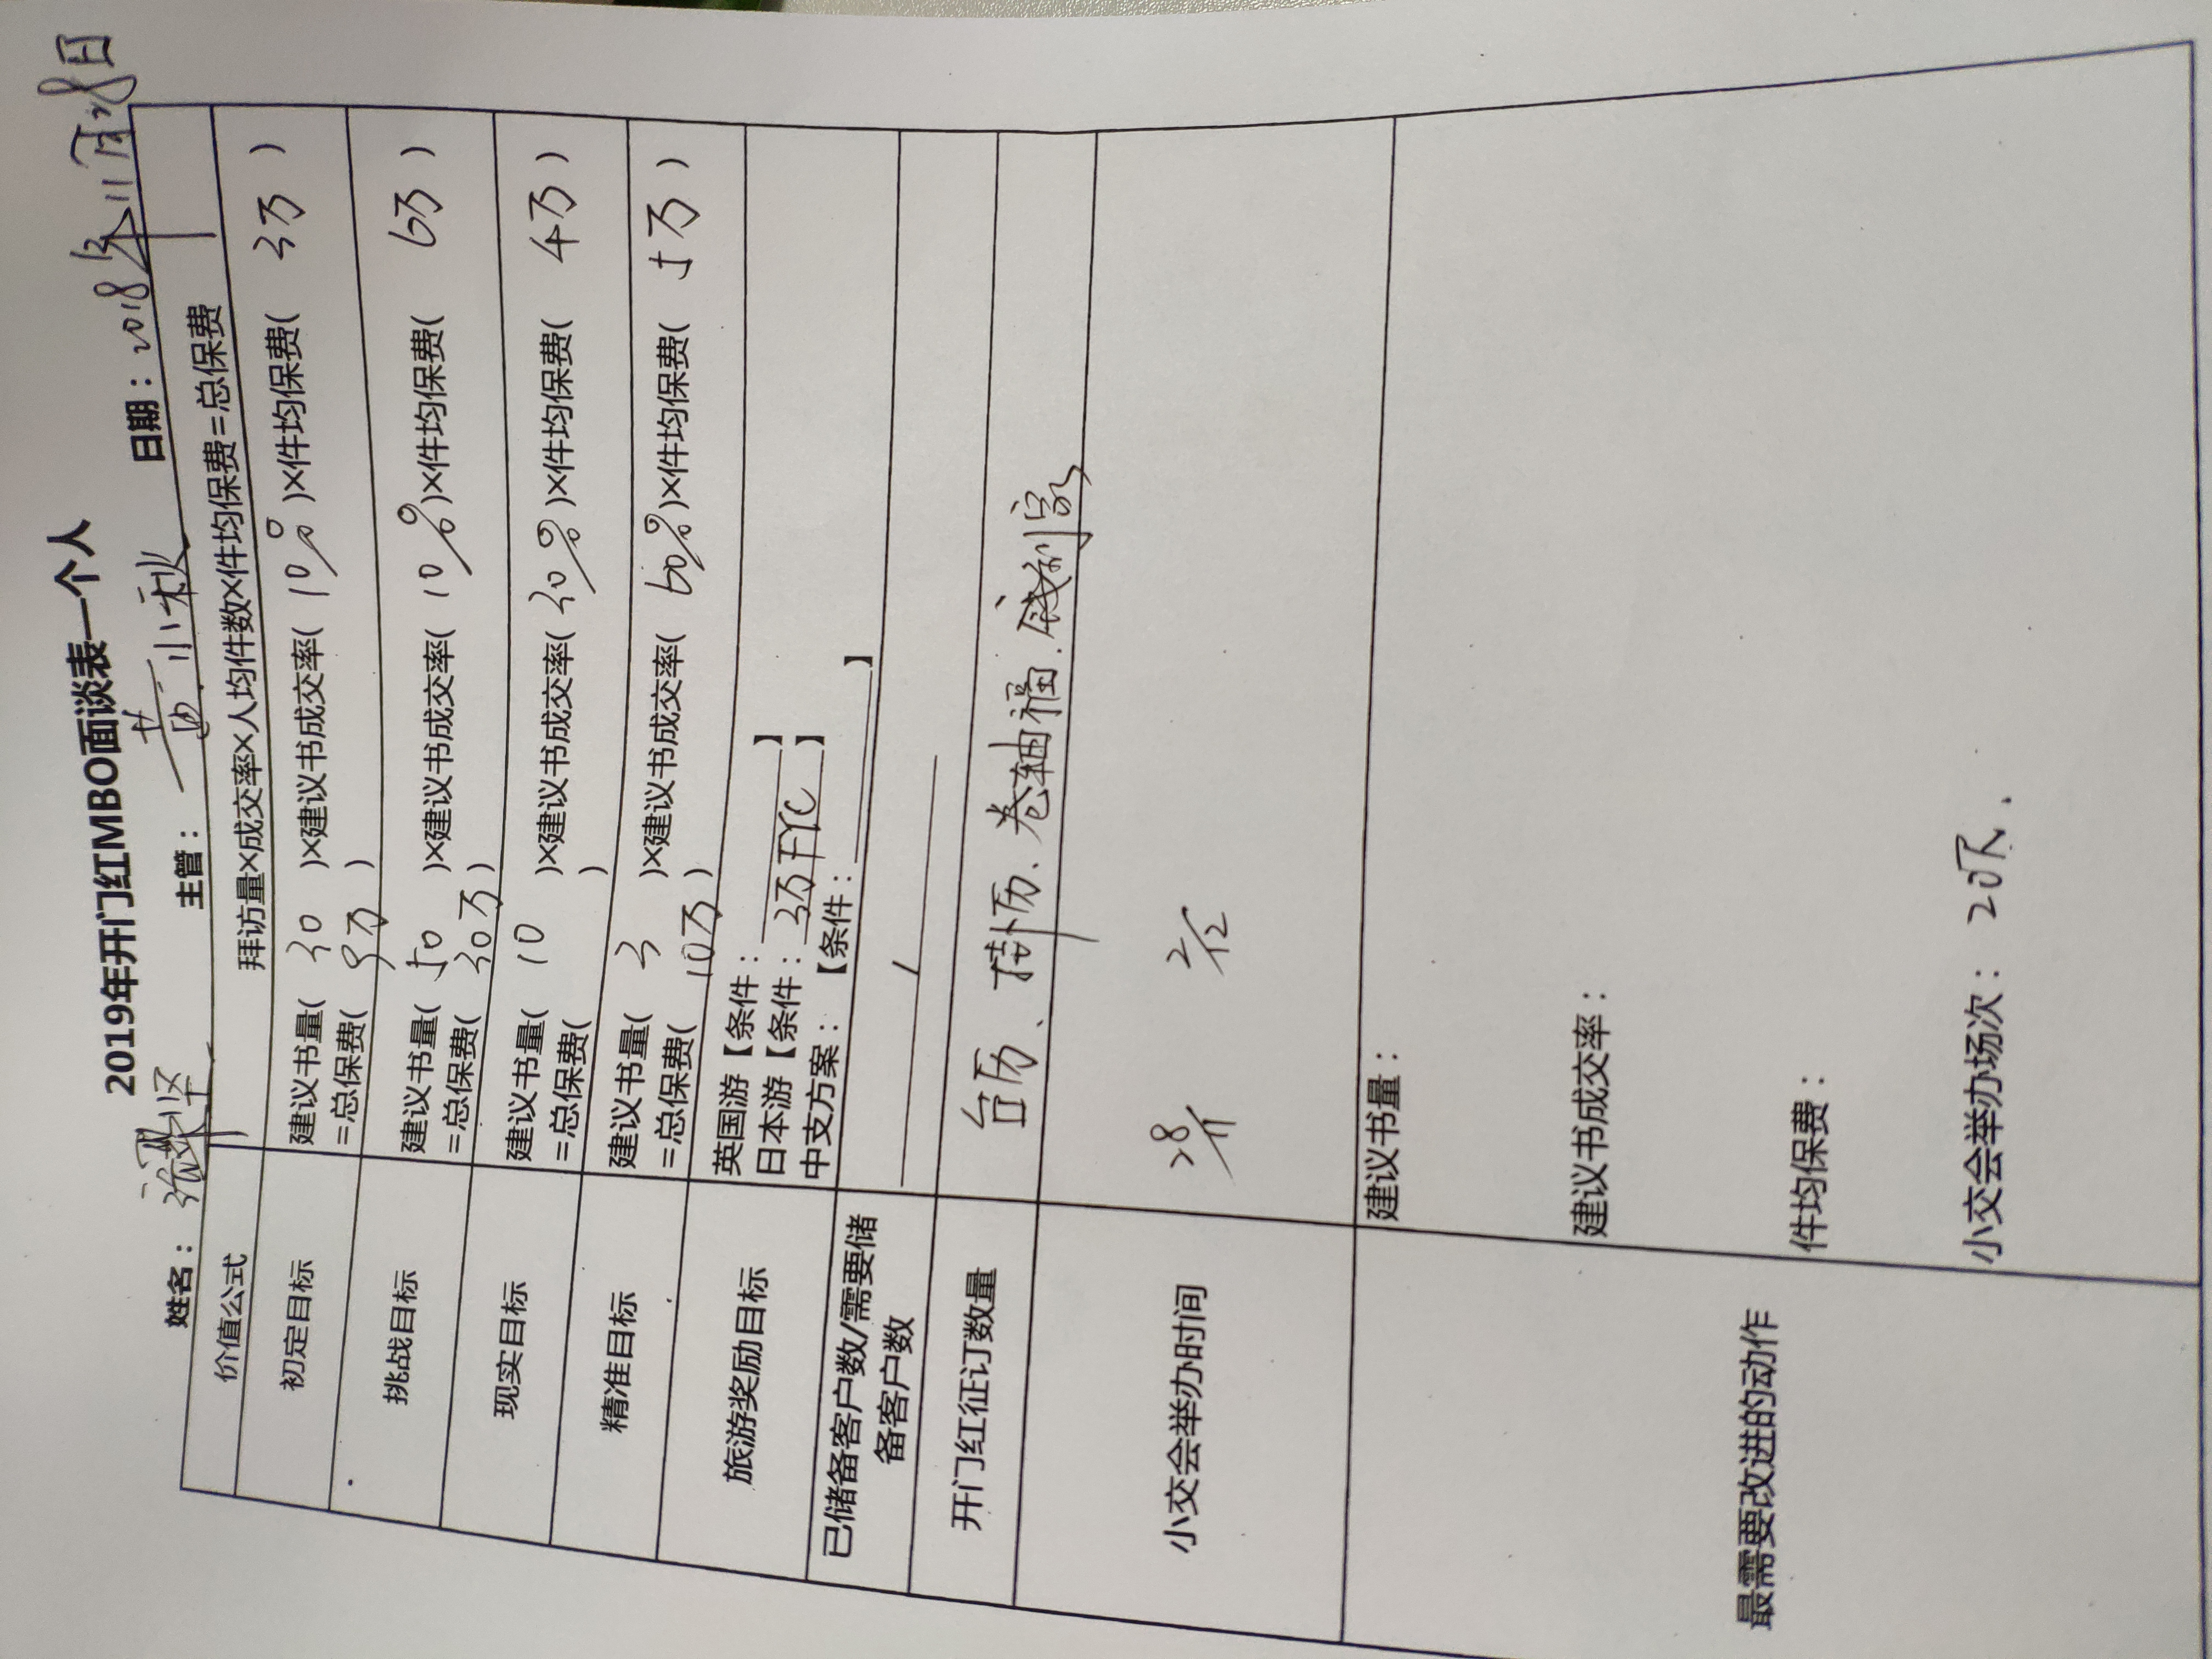 2019年开门红MBO面谈表—个人
姓名： 主管：黄小秋 日期：2018年11月28日
价值公式 拜访量×成交率×人均件数×件均保费=总保费
初定目标 建议书量( 30 )×建议书成交率( 10% )×件均保费( 3万 )
=总保费( 9万 )
挑战目标 建议书量( 50 )×建议书成交率( 10% )×件均保费( 6万 )
=总保费( 30万 )
现实目标 建议书量( 10 )×建议书成交率( 30% )×件均保费( 4万 )
=总保费( )
精准目标 建议书量( 3 )×建议书成交率( 60% )×件均保费( 5万 )
=总保费( 10万 )
旅游奖励目标 英国游【条件： 】
日本游【条件：3万FYC】
中支方案： 【条件： 】
已储备客户数/需要储
备客户数
开门红征订数量 台历、挂历、卷轴福.
小交会举办时间 28/11 2/12
最需要改进的动作 建议书量：
建议书成交率：
件均保费：
小交会举办场次：